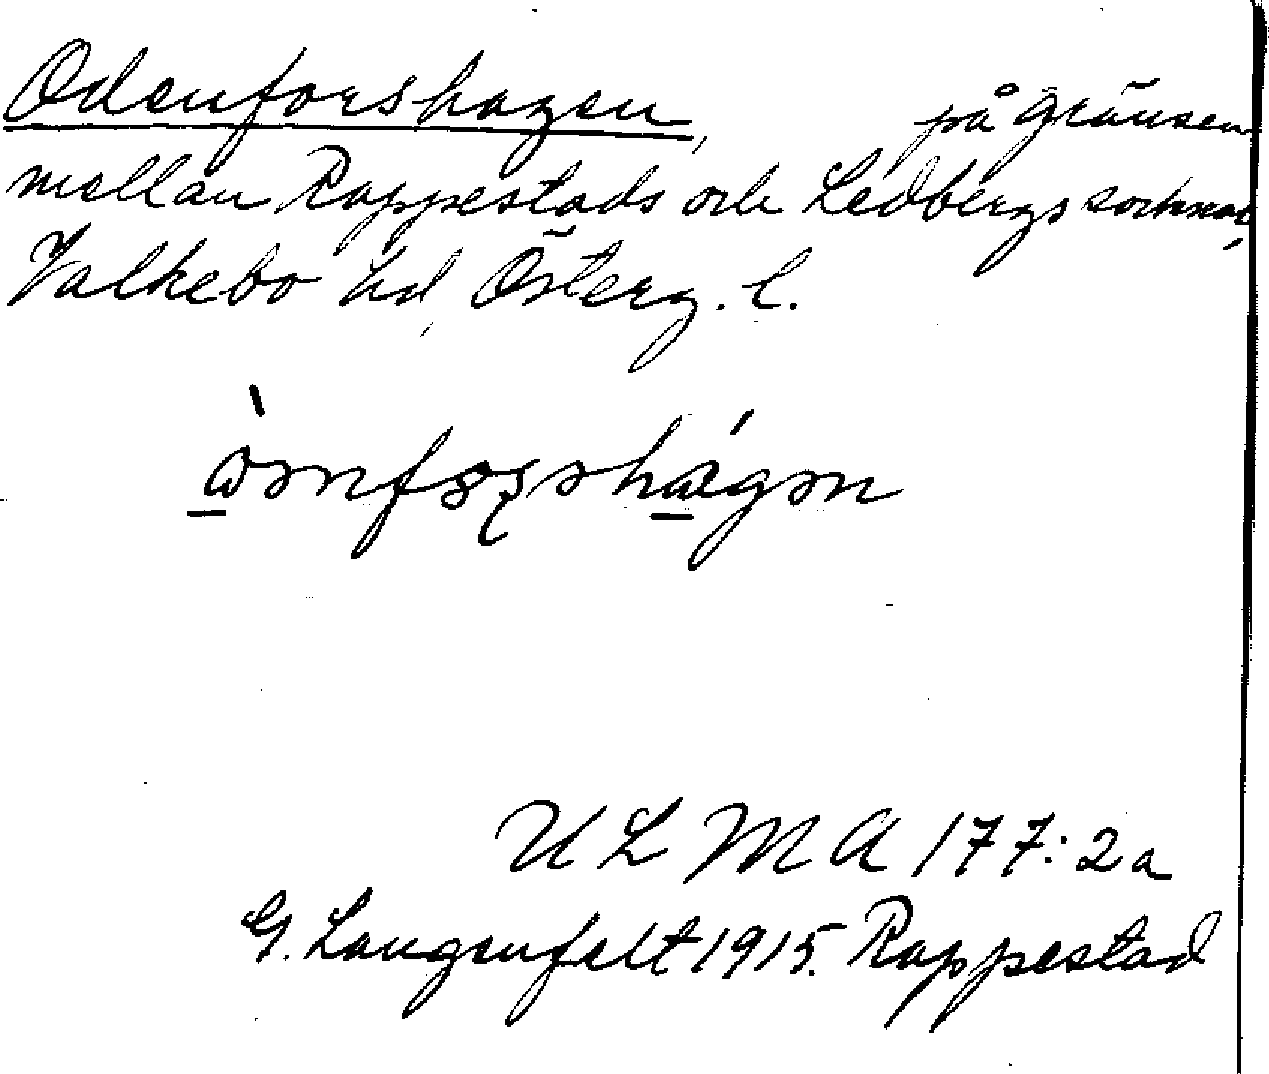 Odenforshagen, på gränsen
mellan Rappestads och Ledbergs socknar,
Valkebo hd, Österg. l.
ULMA 177:2a
G. Langenfelt 1915. Rappestad